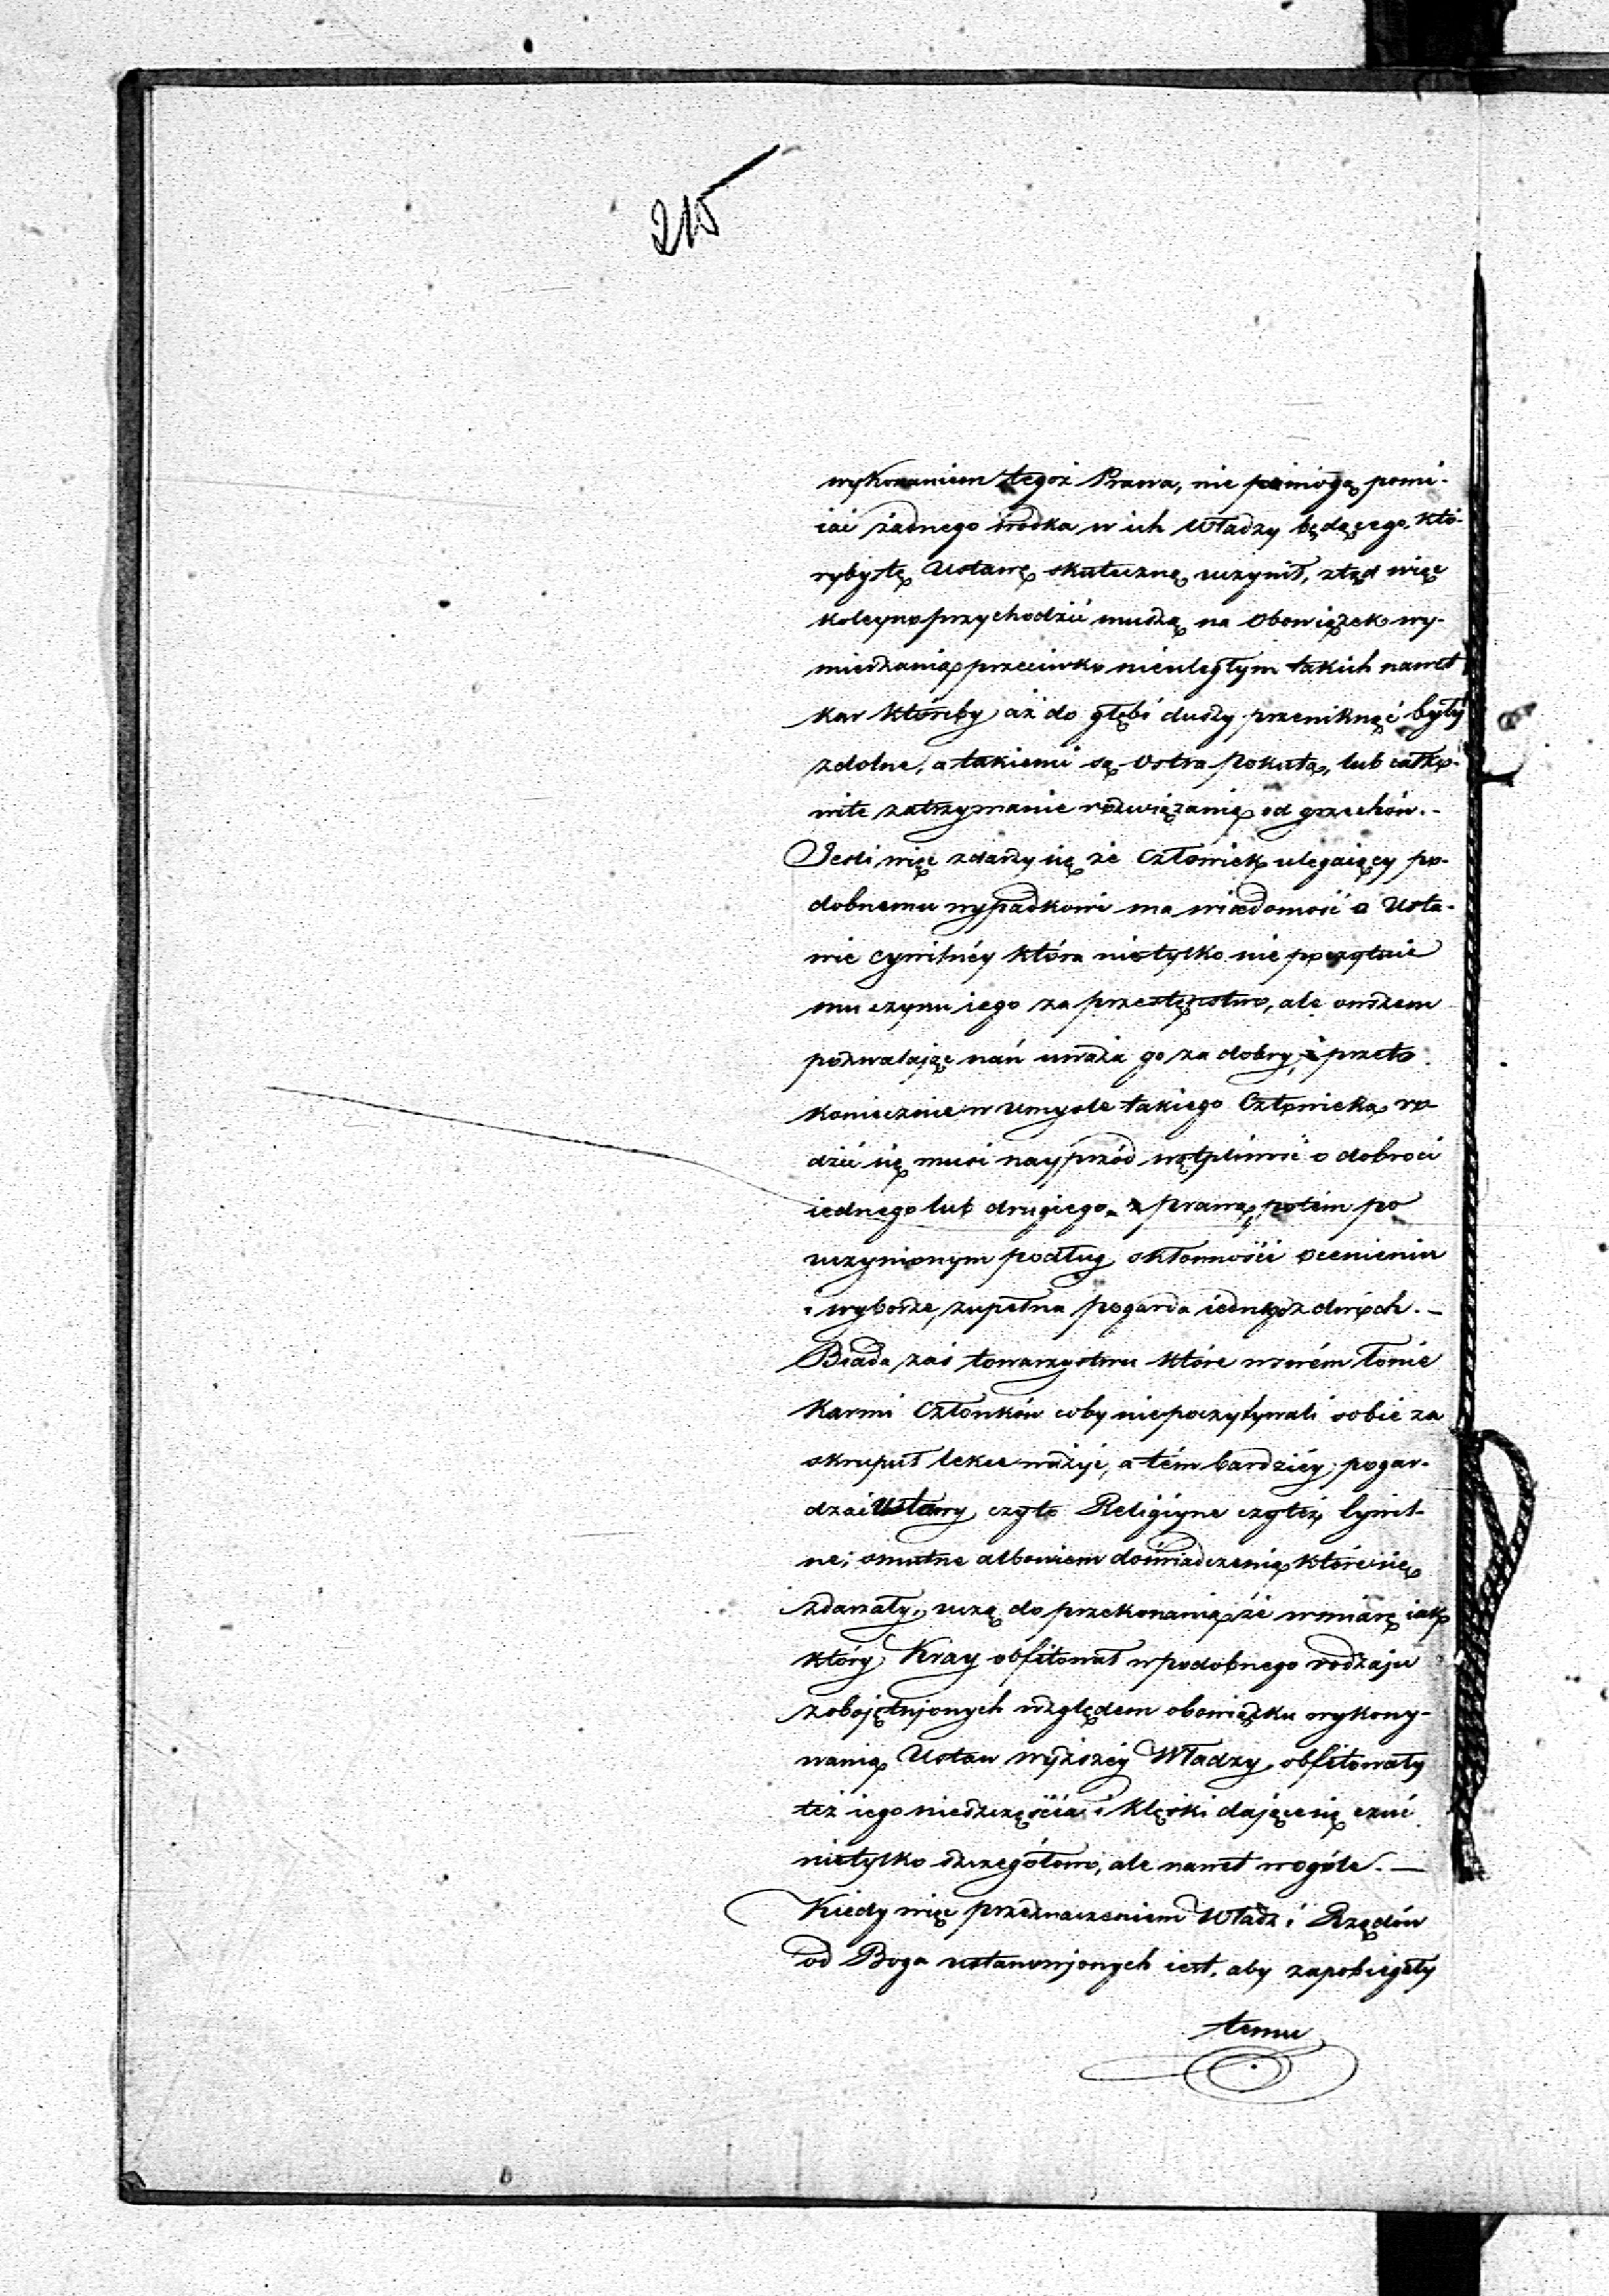 215
wykonaniem tegoż Prawa, nie mogą pomi-
iać żadnego środka w ich Władzy będącego, któ-
ryby tę Ustawę skuteczną uczynił, ztąd więc
koleyno przychodzić muszą na Obowiązek wy-
mierzania przeciwko nieuległym takich nawet
kar któreby aż do głębi duszy przeniknąć były
zdolne, a takiemi są Ostra pokuta, lub całko-
wite zatrzymanie rozwiązania od grzechów.-
Jeśli więc zdarzy się że Człowiek ulegaiący po-
dobnemu wypadkowi ma wiadomość o Usta-
wie cywilnéy która nietylko nie poczytuie
mu czynu iego za przestępstwo, ale owszem
pozwalając nań uważa go za dobry, przeto
koniecznie w umyśle takiego Człowieka ro-
dzić się musi nayprzód wątpliwość o dobroci
iednego lub drugiego prawa, potém po
uczynionym podług skłonności ocenieniu
i wyborze, zupełna pogarda iednego z dwóch.-
Biada zaś towarzystwu które w swém łonie
karmi Członków coby niepoczytywali sobie za
skrupuł lekce ważyć, a tém bardziéy pogar-
dzać Ustawy czyto Religiyne czyteż Cywil-
ne; smutne albowiem doświadczenia które się
zdarzały, uczą do przekonania że w miarę iak
który Kray obfitował w podobnego rodzaju
zobojętnjonych względem obowiązku wykony-
wania Ustaw wyższéy Władzy, obfitowały
też iego nieszczęścia i klęski dające się czuć
nietylko szczegółowo, ale nawet wogóle.-
Kiedy więc przeznaczeniem Władz i Rządów
od Boga ustanowjonych iest, aby zapobiegały
temu